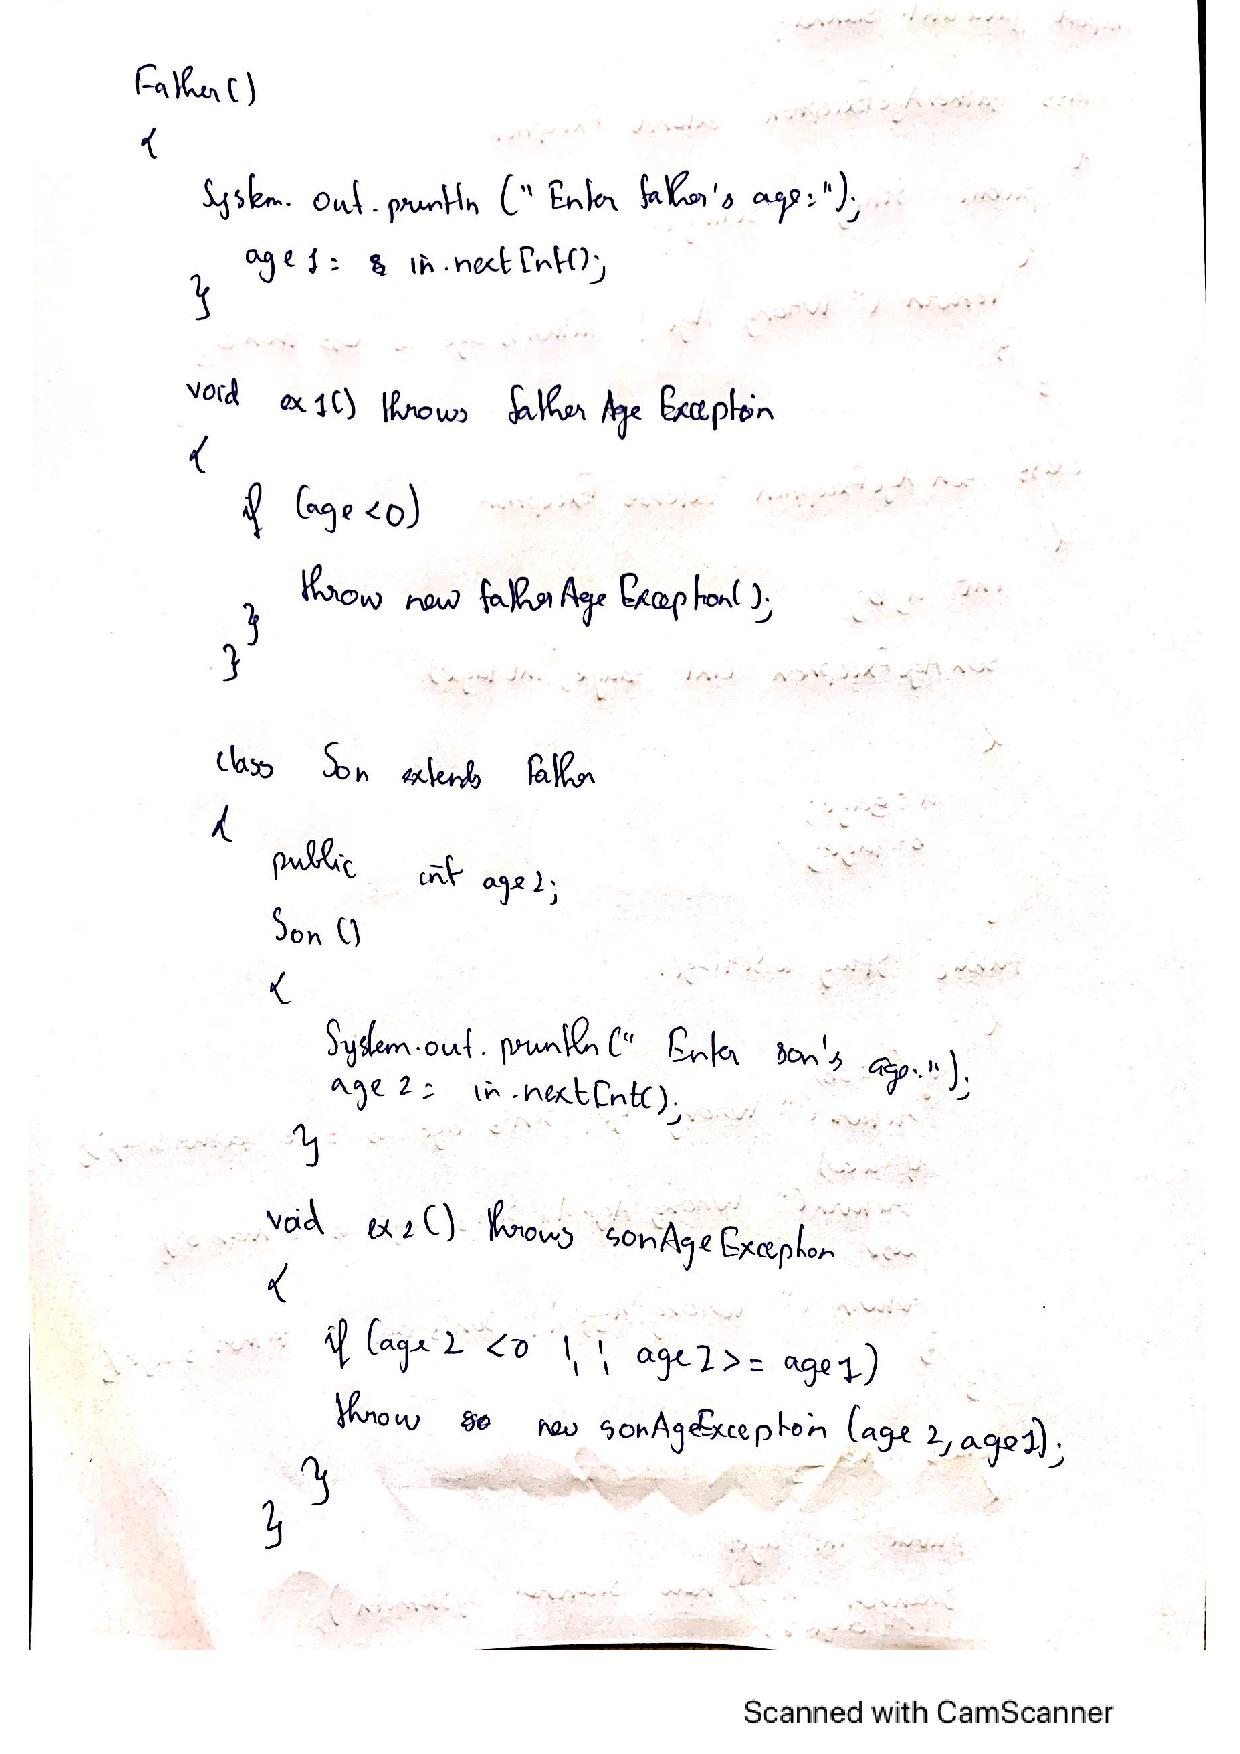 Father()
{
System.out.println ("Enter father's age:");
age1= in.nextInt();
}
void ex1() throws fatherAgeException
{
if (age<0)
throw new fatherAgeException();
}
}
class Son extends Father
{
public int age2;
Son ()
{
System.out.println(" Enter son's age:");
age2= in.nextInt();
}
void ex2() throws sonAgeException
{
if (age2 <0 || age2>= age1)
throw so new sonAgeException (age2, age1);
}
}
Scanned with CamScanner